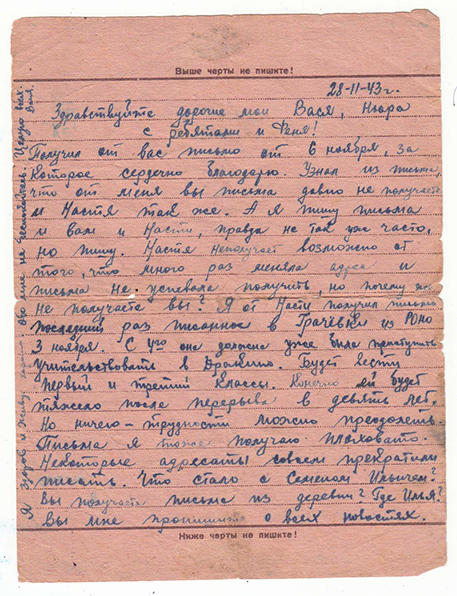 Выше черты не пишите!
28-11-43 г.
Здравствуйте дорогие мои Вася, Нюра
с ребятами и Феня!
Получил от вас письмо от 6 ноября, за
которое сердечно благодарю. Узнал из письма,
что от меня вы письма давно не получаете
и Настя так же. А я пишу письма
и вам и Насти, правда не так уж часто,
но пишу. Настя неполучает возможно от
того, что много раз меняла адреса и
письма не успевала получить, но почему же
не получаете вы? Я от Насти получил письмо
последний раз писанное в Грачёвке из РОНО
3 ноября. С 4го она должна уже была приступить
учительствовать в
Будет вести
первый и третий классы. Конечно ей будет
тяжело после перерыва в девять лет.
Но ничего – трудности можно преодолеть.
Письма я тоже получаю плоховато.
Некоторые адресаты совсем прекратили
писать. Что стало с Семеном Ильичем?
Вы получаете письма из деревни? Где Илья?
Вы мне пропишите о всех новостях.
Ниже черты не пишите!
Я здоров и живу хорошо обо мне не беспокойтесь. Целую всех.
Ваня.